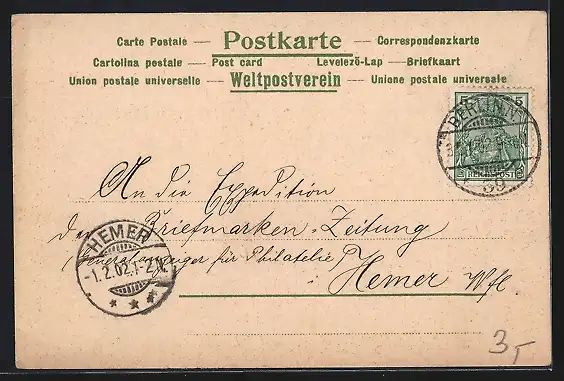 Carte Postale — Postkarte — Correspondenzkarte
Cartolina postale — Post card Levelező-Lap — Briefkaart
Union postale universelle — Weltpostverein — Unione postale universale
5 5
BERLIN.N.
39
REICHSPOST
An die Expedition
der Briefmarken-Zeitung
(Generalanzeiger für Philatelie)
Hemer Wfl
HEMER
-1.2.02.1-2N.
* * *
3,-